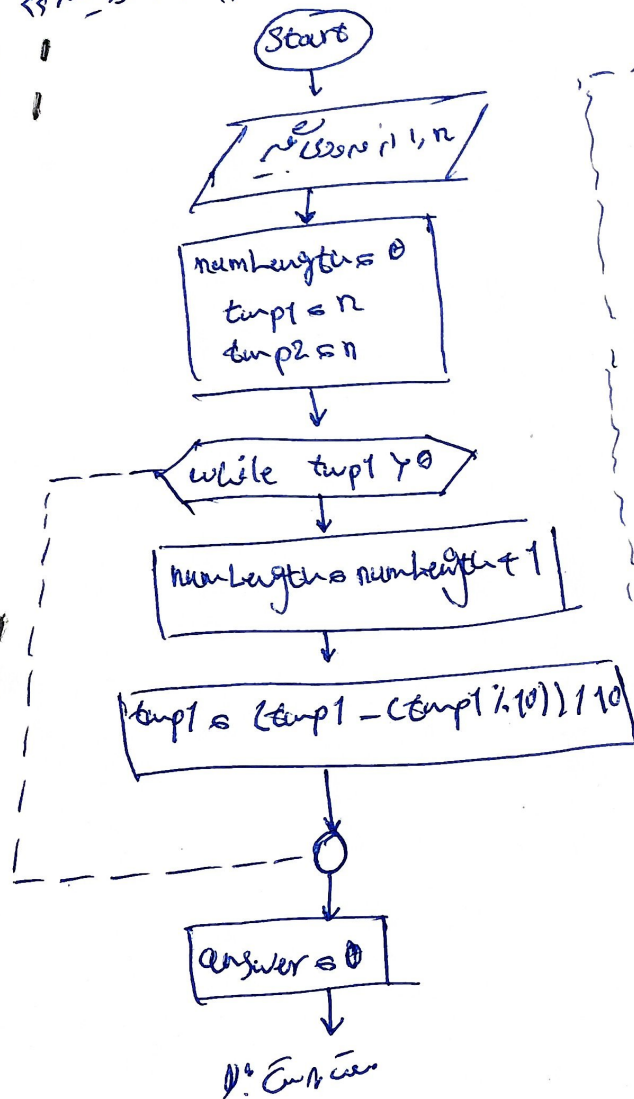 Start
n را از ورودی بگیر
numLength = 0
tmp1 = n
tmp2 = n
while tmp1 > 0
numLength = numLength + 1
tmp1 = (tmp1 - (tmp1 % 10)) / 10
answer = 0